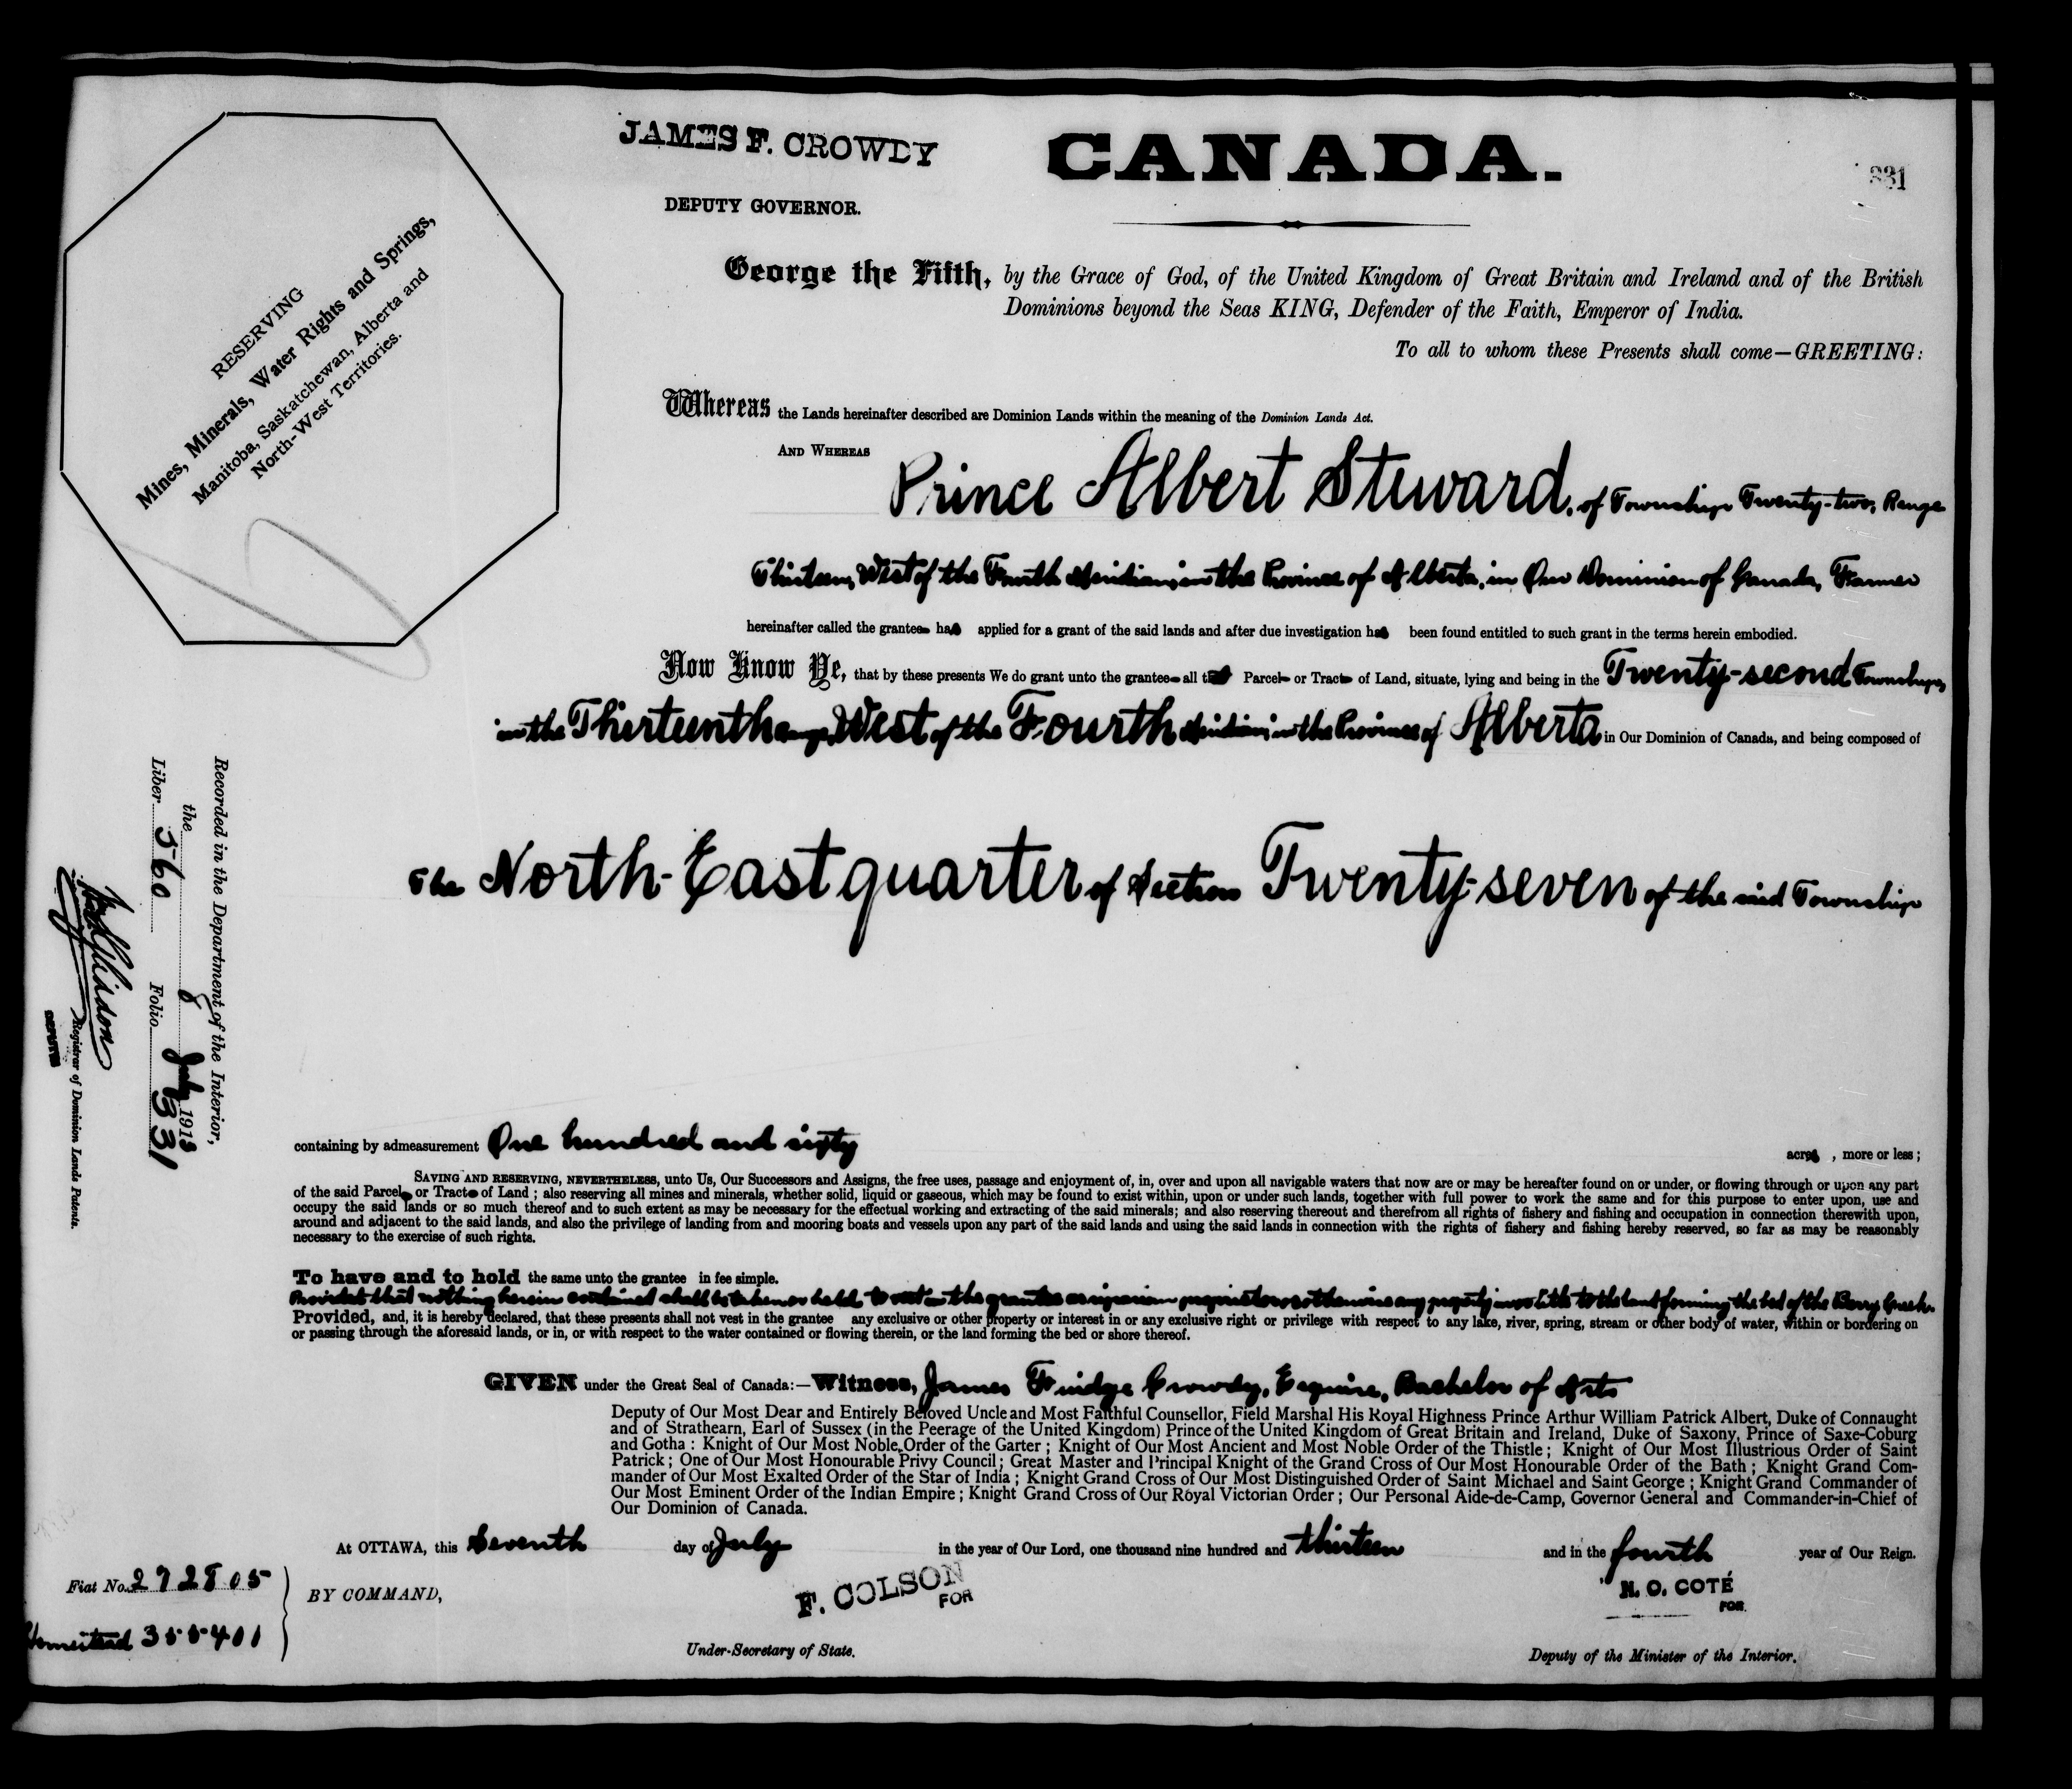 JAMES F. CROWDY
DEPUTY GOVERNOR.
CANADA.
331
RESERVING
Mines, Minerals, Water Rights and Springs,
Manitoba, Saskatchewan, Alberta and
North-West Territories.
George the Fifth, by the Grace of God, of the United Kingdom of Great Britain and Ireland and of the British
Dominions beyond the Seas KING, Defender of the Faith, Emperor of India.
To all to whom these Presents shall come—GREETING:
Whereas the Lands hereinafter described are Dominion Lands within the meaning of the Dominion Lands Act.
AND WHEREAS Prince Albert Steward, of Township Twenty-two, Range
Thirteen, West of the Fourth Meridian, in the Province of Alberta, in Our Dominion of Canada, Farmer
hereinafter called the grantee has applied for a grant of the said lands and after due investigation has been found entitled to such grant in the terms herein embodied.
Now Know Ye, that by these presents We do grant unto the grantee all that Parcel or Tract of Land, situate, lying and being in the Twenty-second Township,
in the Thirteenth Range, West of the Fourth Meridian, in the Province of Alberta in Our Dominion of Canada, and being composed of
The North-East quarter of Section Twenty-seven of the said Township
containing by admeasurement One hundred and sixty acres, more or less;
SAVING AND RESERVING, NEVERTHELESS, unto Us, Our Successors and Assigns, the free uses, passage and enjoyment of, in, over and upon all navigable waters that now are or may be hereafter found on or under, or flowing through or upon any part
of the said Parcel or Tract of Land; also reserving all mines and minerals, whether solid, liquid or gaseous, which may be found to exist within, upon or under such lands, together with full power to work the same and for this purpose to enter upon, use and
occupy the said lands or so much thereof and to such extent as may be necessary for the effectual working and extracting of the said minerals; and also reserving thereout and therefrom all rights of fishery and fishing and occupation in connection therewith upon,
around and adjacent to the said lands, and also the privilege of landing from and mooring boats and vessels upon any part of the said lands and using the said lands in connection with the rights of fishery and fishing hereby reserved, so far as may be reasonably
necessary to the exercise of such rights.
To have and to hold the same unto the grantee in fee simple.
Provided that nothing herein contained shall be taken or held to vest in the grantee as riparian proprietor or otherwise any property in or title to the land forming the bed of the Berry Creek.
Provided, and, it is hereby declared, that these presents shall not vest in the grantee any exclusive or other property or interest in or any exclusive right or privilege with respect to any lake, river, spring, stream or other body of water, within or bordering on
or passing through the aforesaid lands, or in, or with respect to the water contained or flowing therein, or the land forming the bed or shore thereof.
GIVEN under the Great Seal of Canada:—Witness, James Fuidge Crowdy, Esquire, Bachelor of Arts
Deputy of Our Most Dear and Entirely Beloved Uncle and Most Faithful Counsellor, Field Marshal His Royal Highness Prince Arthur William Patrick Albert, Duke of Connaught
and of Strathearn, Earl of Sussex (in the Peerage of the United Kingdom) Prince of the United Kingdom of Great Britain and Ireland, Duke of Saxony, Prince of Saxe-Coburg
and Gotha: Knight of Our Most Noble Order of the Garter; Knight of Our Most Ancient and Most Noble Order of the Thistle; Knight of Our Most Illustrious Order of Saint
Patrick; One of Our Most Honourable Privy Council; Great Master and Principal Knight of the Grand Cross of Our Most Honourable Order of the Bath; Knight Grand Com-
mander of Our Most Exalted Order of the Star of India; Knight Grand Cross of Our Most Distinguished Order of Saint Michael and Saint George; Knight Grand Commander of
Our Most Eminent Order of the Indian Empire; Knight Grand Cross of Our Royal Victorian Order; Our Personal Aide-de-Camp, Governor General and Commander-in-Chief of
Our Dominion of Canada.
At OTTAWA, this Seventh day of July in the year of Our Lord, one thousand nine hundred and thirteen and in the fourth year of Our Reign.
Fiat No. 272805
Homestead 355401
BY COMMAND,
F. COLSON
FOR
Under-Secretary of State.
N. O. COTÉ
FOR
Deputy of the Minister of the Interior.
Recorded in the Department of the Interior,
the 8 July 1913
Liber 560 Folio 331
Registrar of Dominion Lands Patents.
DEPUTY